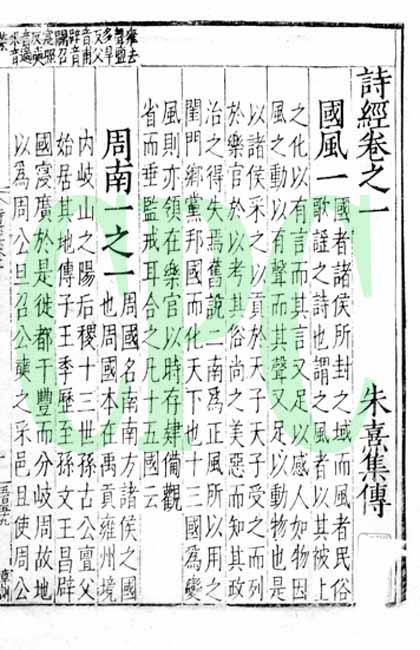 詩經卷之一
朱熹集傳
國風一
國者諸侯所封之域而風者民俗
歌謡之詩也謂之風者以其被上
之化以有言而其言又足以感人如物因
風之動以有聲而其聲又足以動物也是
以諸侯采之以貢於天子天子受之而列
於樂官於以考其俗尚之美惡而知其政
治之得失焉舊說二南為正風所以用之
閨門鄉黨邦國而化天下也十三國為變
風則亦領在樂官以時存肄備觀
省而垂監戒耳合之凡十五國云
周南一之一
周國名南南方諸侯之國
也周國本在禹貢雍州境
內岐山之陽后稷十三世孫古公亶父
始居其地傳子王季歷至孫文王昌辟
國寖廣於是徙都于豐而分岐周故地
以為周公旦召公奭之采邑且使周公
雍去
聲亶
多旱
反父
音甫
辟音
闢召
寔照
反奭
音適
采音
CPC